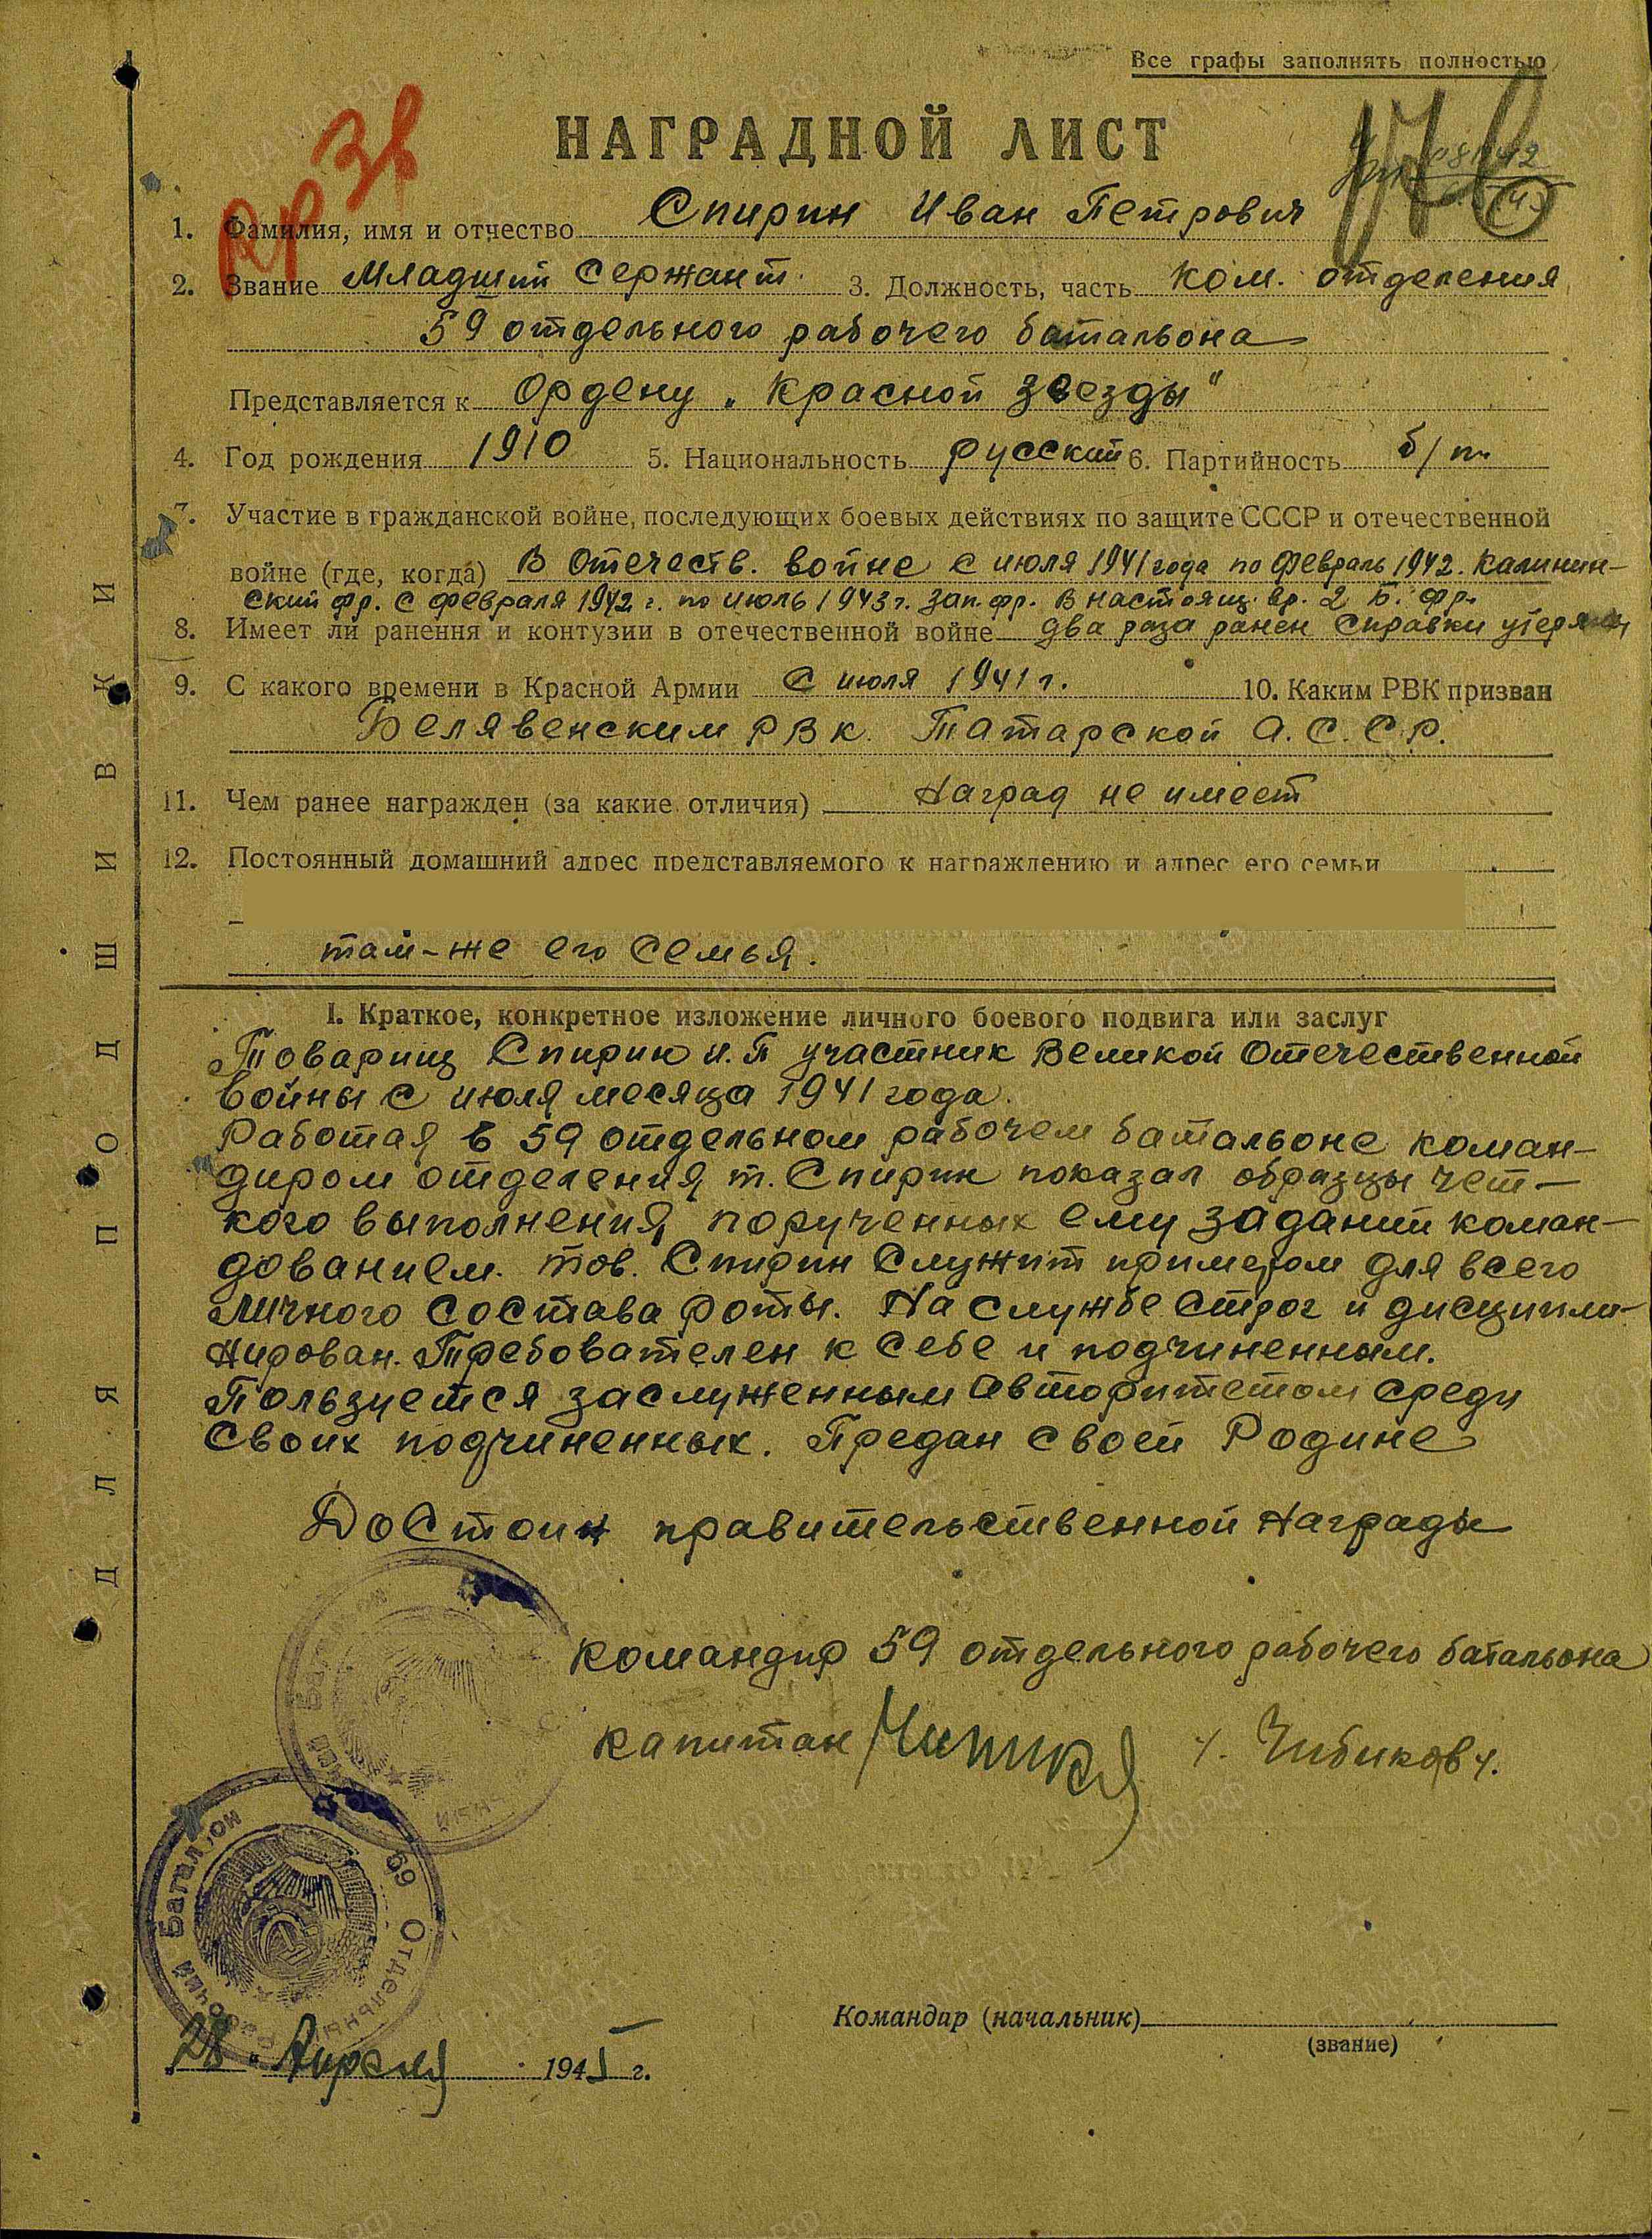 Все графы заполнять полностью
НАГРАДНОЙ ЛИСТ
1. Фамилия, имя и отчество Спирин Иван Петрович
2. Звание Младший Сержант. 3. Должность, часть ком. отделения
59 отдельного рабочего батальона
Представляется к Ордену „Красной звезды"
4. Год рождения 1910 5. Национальность русский 6. Партийность б/п
7. Участие в гражданской войне, последующих боевых действиях по защите СССР и отечественной
войне (где, когда) В Отечеств. войне с июля 1941 года по февраль 1942. Калинин-
ский фр. С февраля 1942 г. по июль 1943 г. Зап. фр. В настоящ. вр. 2 Б. фр.
8. Имеет ли ранения и контузии в отечественной войне два раза ранен Справки утеряны
9. С какого времени в Красной Армии С июля 1941 г. 10. Каким РВК призван
Белявенским РВК. Татарской А.С.С.Р.
11. Чем ранее награжден (за какие отличия) Наград не имеет
12. Постоянный домашний адрес представляемого к награждению и адрес его семьи
там-же его семья.
I. Краткое, конкретное изложение личного боевого подвига или заслуг
Товарищ Спирин И.П участник Великой Отечественной
войны с июля месяца 1941 года.
Работая в 59 отдельном рабочем батальоне коман-
диром отделения, т. Спирин показал образцы чет-
кого выполнения порученных ему заданий коман-
дованием. тов. Спирин Служит примером для всего
личного состава роты. На службе строг и дисципли-
нирован. Требователен к себе и подчиненным.
Пользуется заслуженным авторитетом среди
Своих подчиненных. Предан своей Родине
Достоин правительственной Награды
командир 59 отдельного рабочего батальона
капитан /Чибиков/.
59 Отдельный Рабочий Батальон
Командир (начальник)
(звание)
„28" Апреля 1945 г.
ДЛЯ ПОДШИВКИ